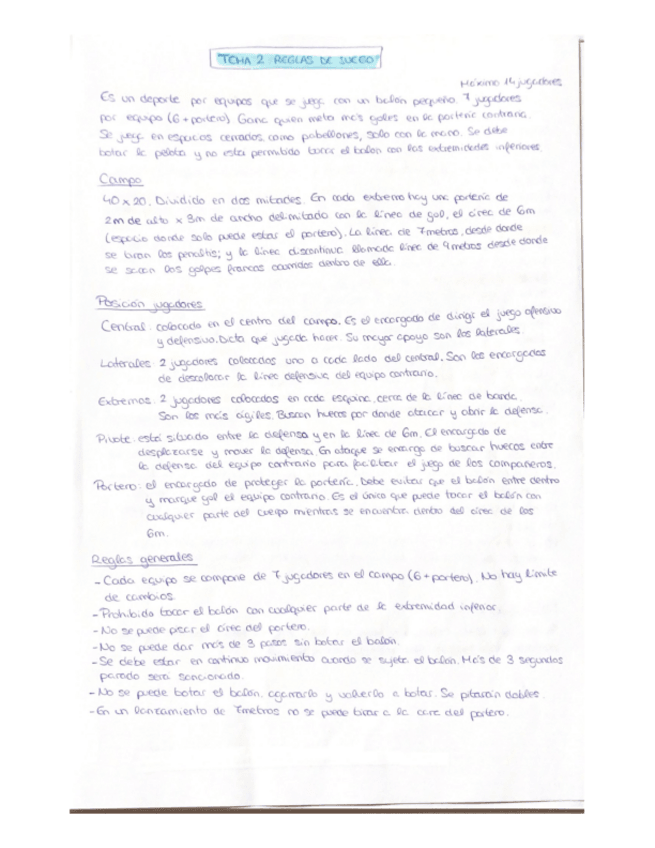 TEMA 2 REGLAS DE JUEGO
Máximo 14 jugadores
Es un deporte por equipos que se juega con un balón pequeño. 7 jugadores
por equipo (6 + portero) Gana quien meta más goles en la portería contraria.
Se juega en espacios cerrados como pabellones, solo con la mano. Se debe
botar la pelota y no esta permitido tocar el balón con las extremidades inferiores.
Campo
40 x 20. Dividido en dos mitades. En cada extremo hay una portería de
2m de alto x 3m de ancho delimitado con la línea de gol, el área de 6m
(espacio donde solo puede estar el portero). La línea de 7metros, desde donde
se tiran los penaltis; y la línea discontinua llamada línea de 9 metros desde donde
se sacan los golpes francos ocurridos dentro de ella.
Posición jugadores
Central: colocado en el centro del campo. Es el encargado de dirigir el juego ofensivo
y defensivo. Dicta que jugada hacer. Su mayor apoyo son los laterales.
Laterales: 2 jugadores colocados uno a cada lado del central. Son los encargados
de descolocar la línea defensiva del equipo contrario.
Extremos: 2 jugadores colocados en cada esquina, cerca de la línea de banda.
Son los más ágiles. Buscan huecos por donde atacar y abrir la defensa.
Pivote: está situado entre la defensa y en la línea de 6m. El encargado de
desplazarse y mover la defensa. En ataque se encarga de buscar huecos entre
la defensa del equipo contrario para facilitar el juego de los compañeros.
Portero: el encargado de proteger la portería. Debe evitar que el balón entre dentro
y marque gol el equipo contrario. Es el único que puede tocar el balón con
cualquier parte del cuerpo mientras se encuentra dentro del área de los
6m.
Reglas generales
- Cada equipo se compone de 7 jugadores en el campo (6 + portero). No hay límite
de cambios.
- Prohibido tocar el balón con cualquier parte de la extremidad inferior.
- No se puede pisar el área del portero.
- No se puede dar más de 3 pasos sin botar el balón.
- Se debe estar en continuo movimiento cuando se sujeta el balón. Más de 3 segundos
parado será sancionado.
- No se puede botar el balón, agarrarlo y volverlo a botar. Se pitarán dobles.
- En un lanzamiento de 7metros no se puede tirar a la cara del portero.